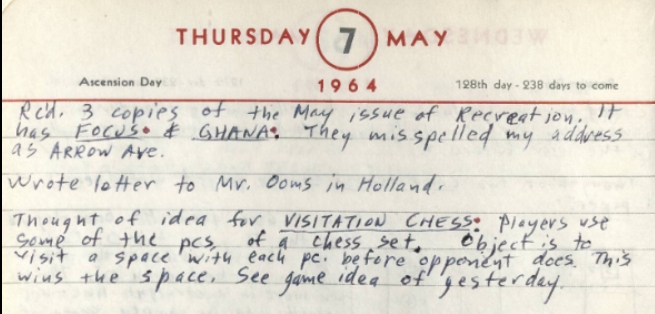 THURSDAY 7 MAY
Ascension Day 1964 128th day - 238 days to come
Rcd. 3 copies of the May issue of Recreation. It
has FOCUS & GHANA. They misspelled my address
as ARROW AVE.
Wrote letter to Mr. Ooms in Holland.
Thought of idea for VISITATION CHESS. Players use
some of the pcs. of a chess set. Object is to
visit a space with each pc. before opponent does. This
wins the space. See game idea of yesterday.